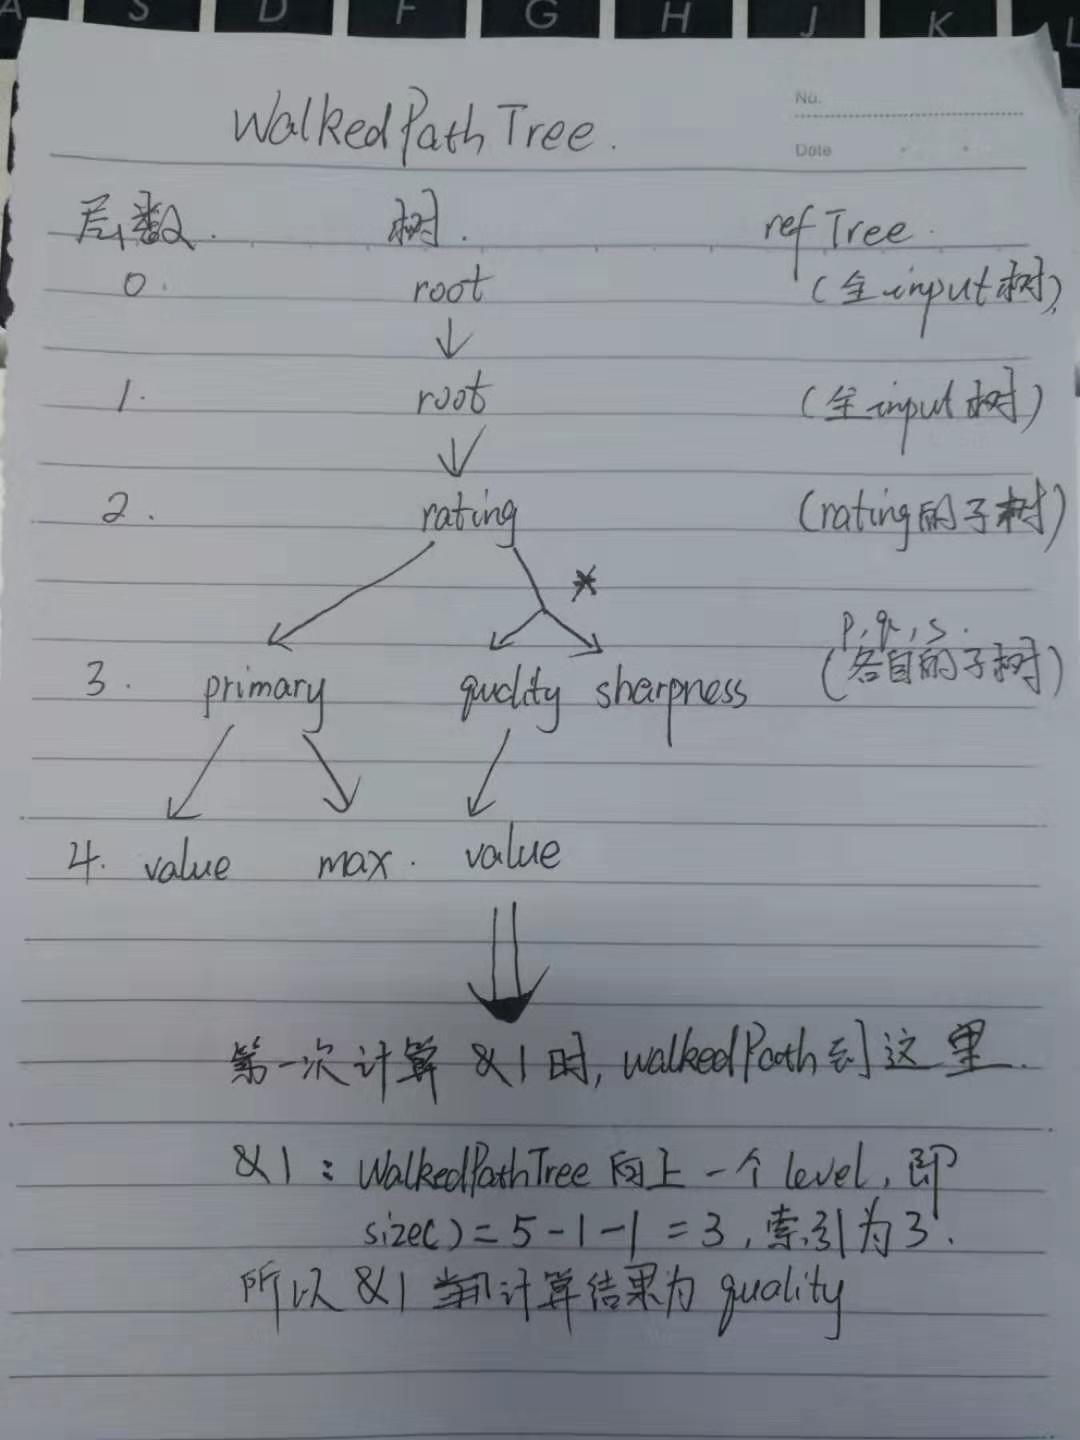 A S D F G H J K L
No.
WalkedPathTree.
Date
层数. 树. refTree.
0. root (全input树)
1. root (全input树)
2. rating (rating的子树)
*
p, q, s.
3. primary quality sharpness (各自的子树)
4. value max. value
第一次计算 &1时, walkedPath到这里.
&1: WalkedPathTree 向上一个level, 即
size() = 5-1-1 = 3, 索引为3.
所以 &1 计算结果为 quality